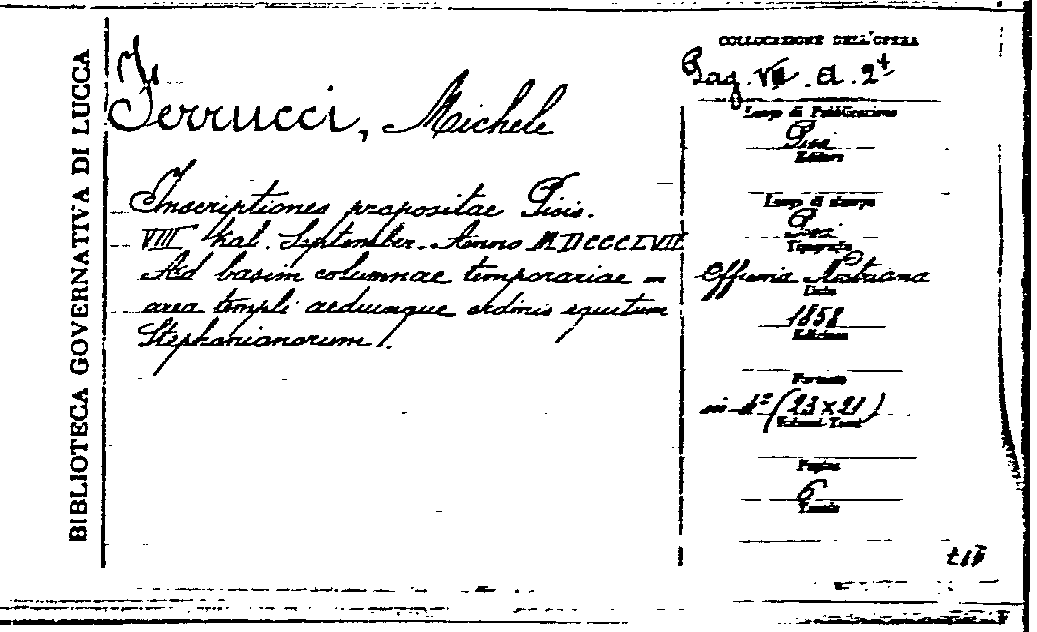 BIBLIOTECA GOVERNATIVA DI LUCCA
Ferrucci, Michele
Inscriptiones propositae Pisis.
VIII kal. September. Anno MDCCCLVII
Ad basim columnae temporariae in
area templi aediumque ordinis equitum
Stephanianorum.
COLLOCAZIONE DELL'OPERA
Pag. VII. d. 2
Luogo di Pubblicazione
Pisa
Editore
Luogo di stampa
Pisa
Tipografia
Officina Nistriana
Data
1858
Edizione
Formato
in-4º (23x21)
Volumi-Tomi
Pagine
6
Tavole